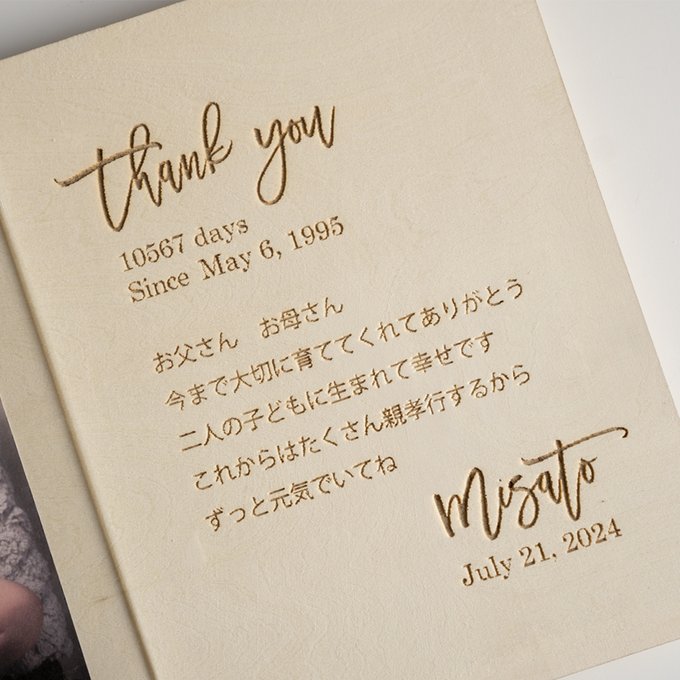 thank you
10567 days
Since May 6, 1995
お父さん　お母さん
今まで大切に育ててくれてありがとう
二人の子どもに生まれて幸せです
これからはたくさん親孝行するから
ずっと元気でいてね
Misato
July 21, 2024